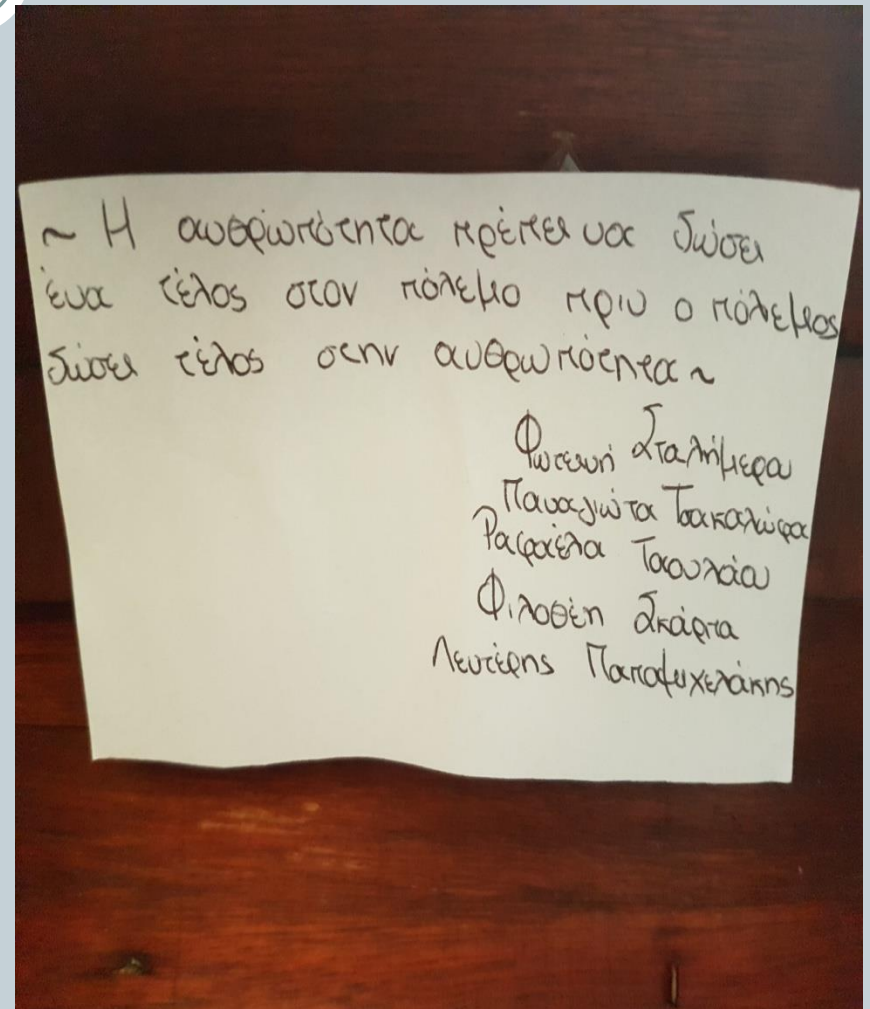 ~ Η ανθρωπότητα πρέπει να δώσει
ένα τέλος στον πόλεμο πριν ο πόλεμος
δώσει τέλος στην ανθρωπότητα ~
Φωτεινή Σταλήμερα
Παναγιώτα Τσακαλώφα
Ραφαέλα Τσουλάου
Φιλοθέη Σκάρπα
Λευτέρης Παπαψυχελάκης